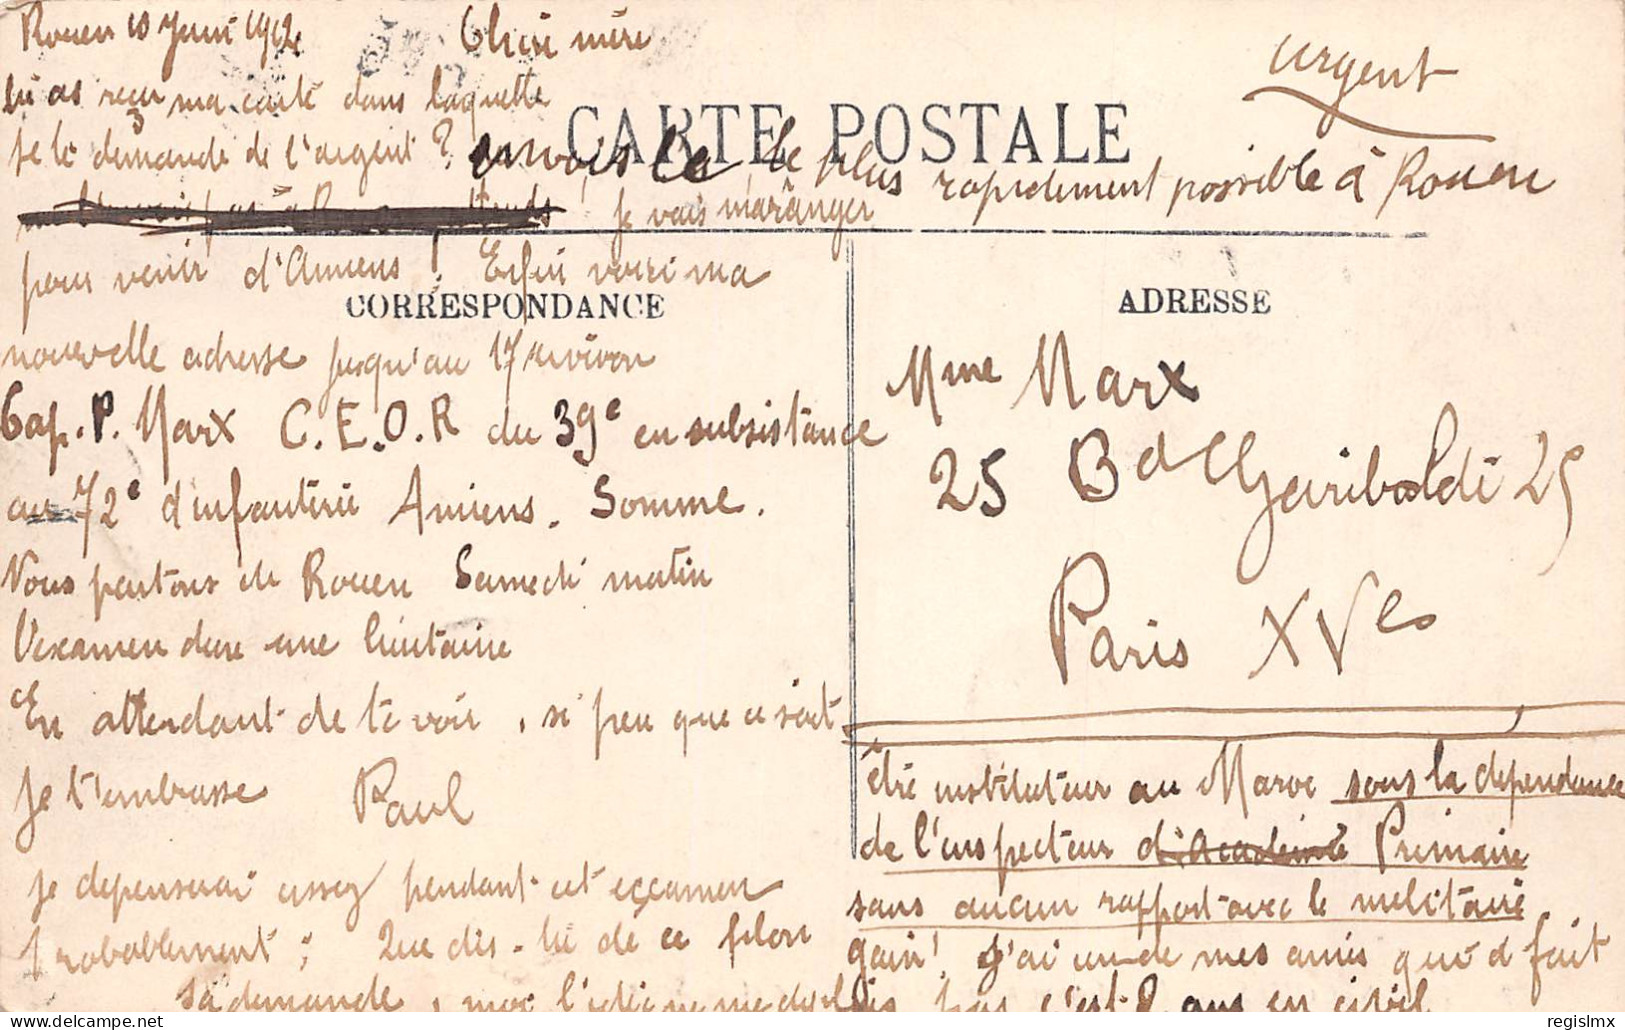 Rouen 10 Juin 1912 Chère mère
tu as reçu ma carte dans laquelle
je te demande de l'argent ? envois le le plus rapidement possible à Rouen
je vais m'arranger
pour venir d'Amiens ! Enfin voici ma
nouvelle adresse jusqu'au 17 environ
Cap. P. Marx C.E.O.R du 39e en subsistance
au 72e d'infanterie Amiens. Somme.
Nous partons de Rouen Samedi matin
L'examen dure une
En attendant de te voir, si peu que ce soit,
Je t'embrasse Paul
Je depenserai assez pendant cet exçamen
probablement ; Que dis-tu de ce filon
sa demande, moi l'idée ne me deplais pas c'est 2 ans en civil
urgent
CARTE POSTALE
CORRESPONDANCE
ADRESSE
Mme Marx
25 Bd Garibaldi 25
Paris XVe
être instituteur au Maroc sous la dependance
de l'inspecteur d'Academie Primaire
sans aucun rapport avec le militaire
gain ! J'ai un de mes amis qui a fait
regislmx